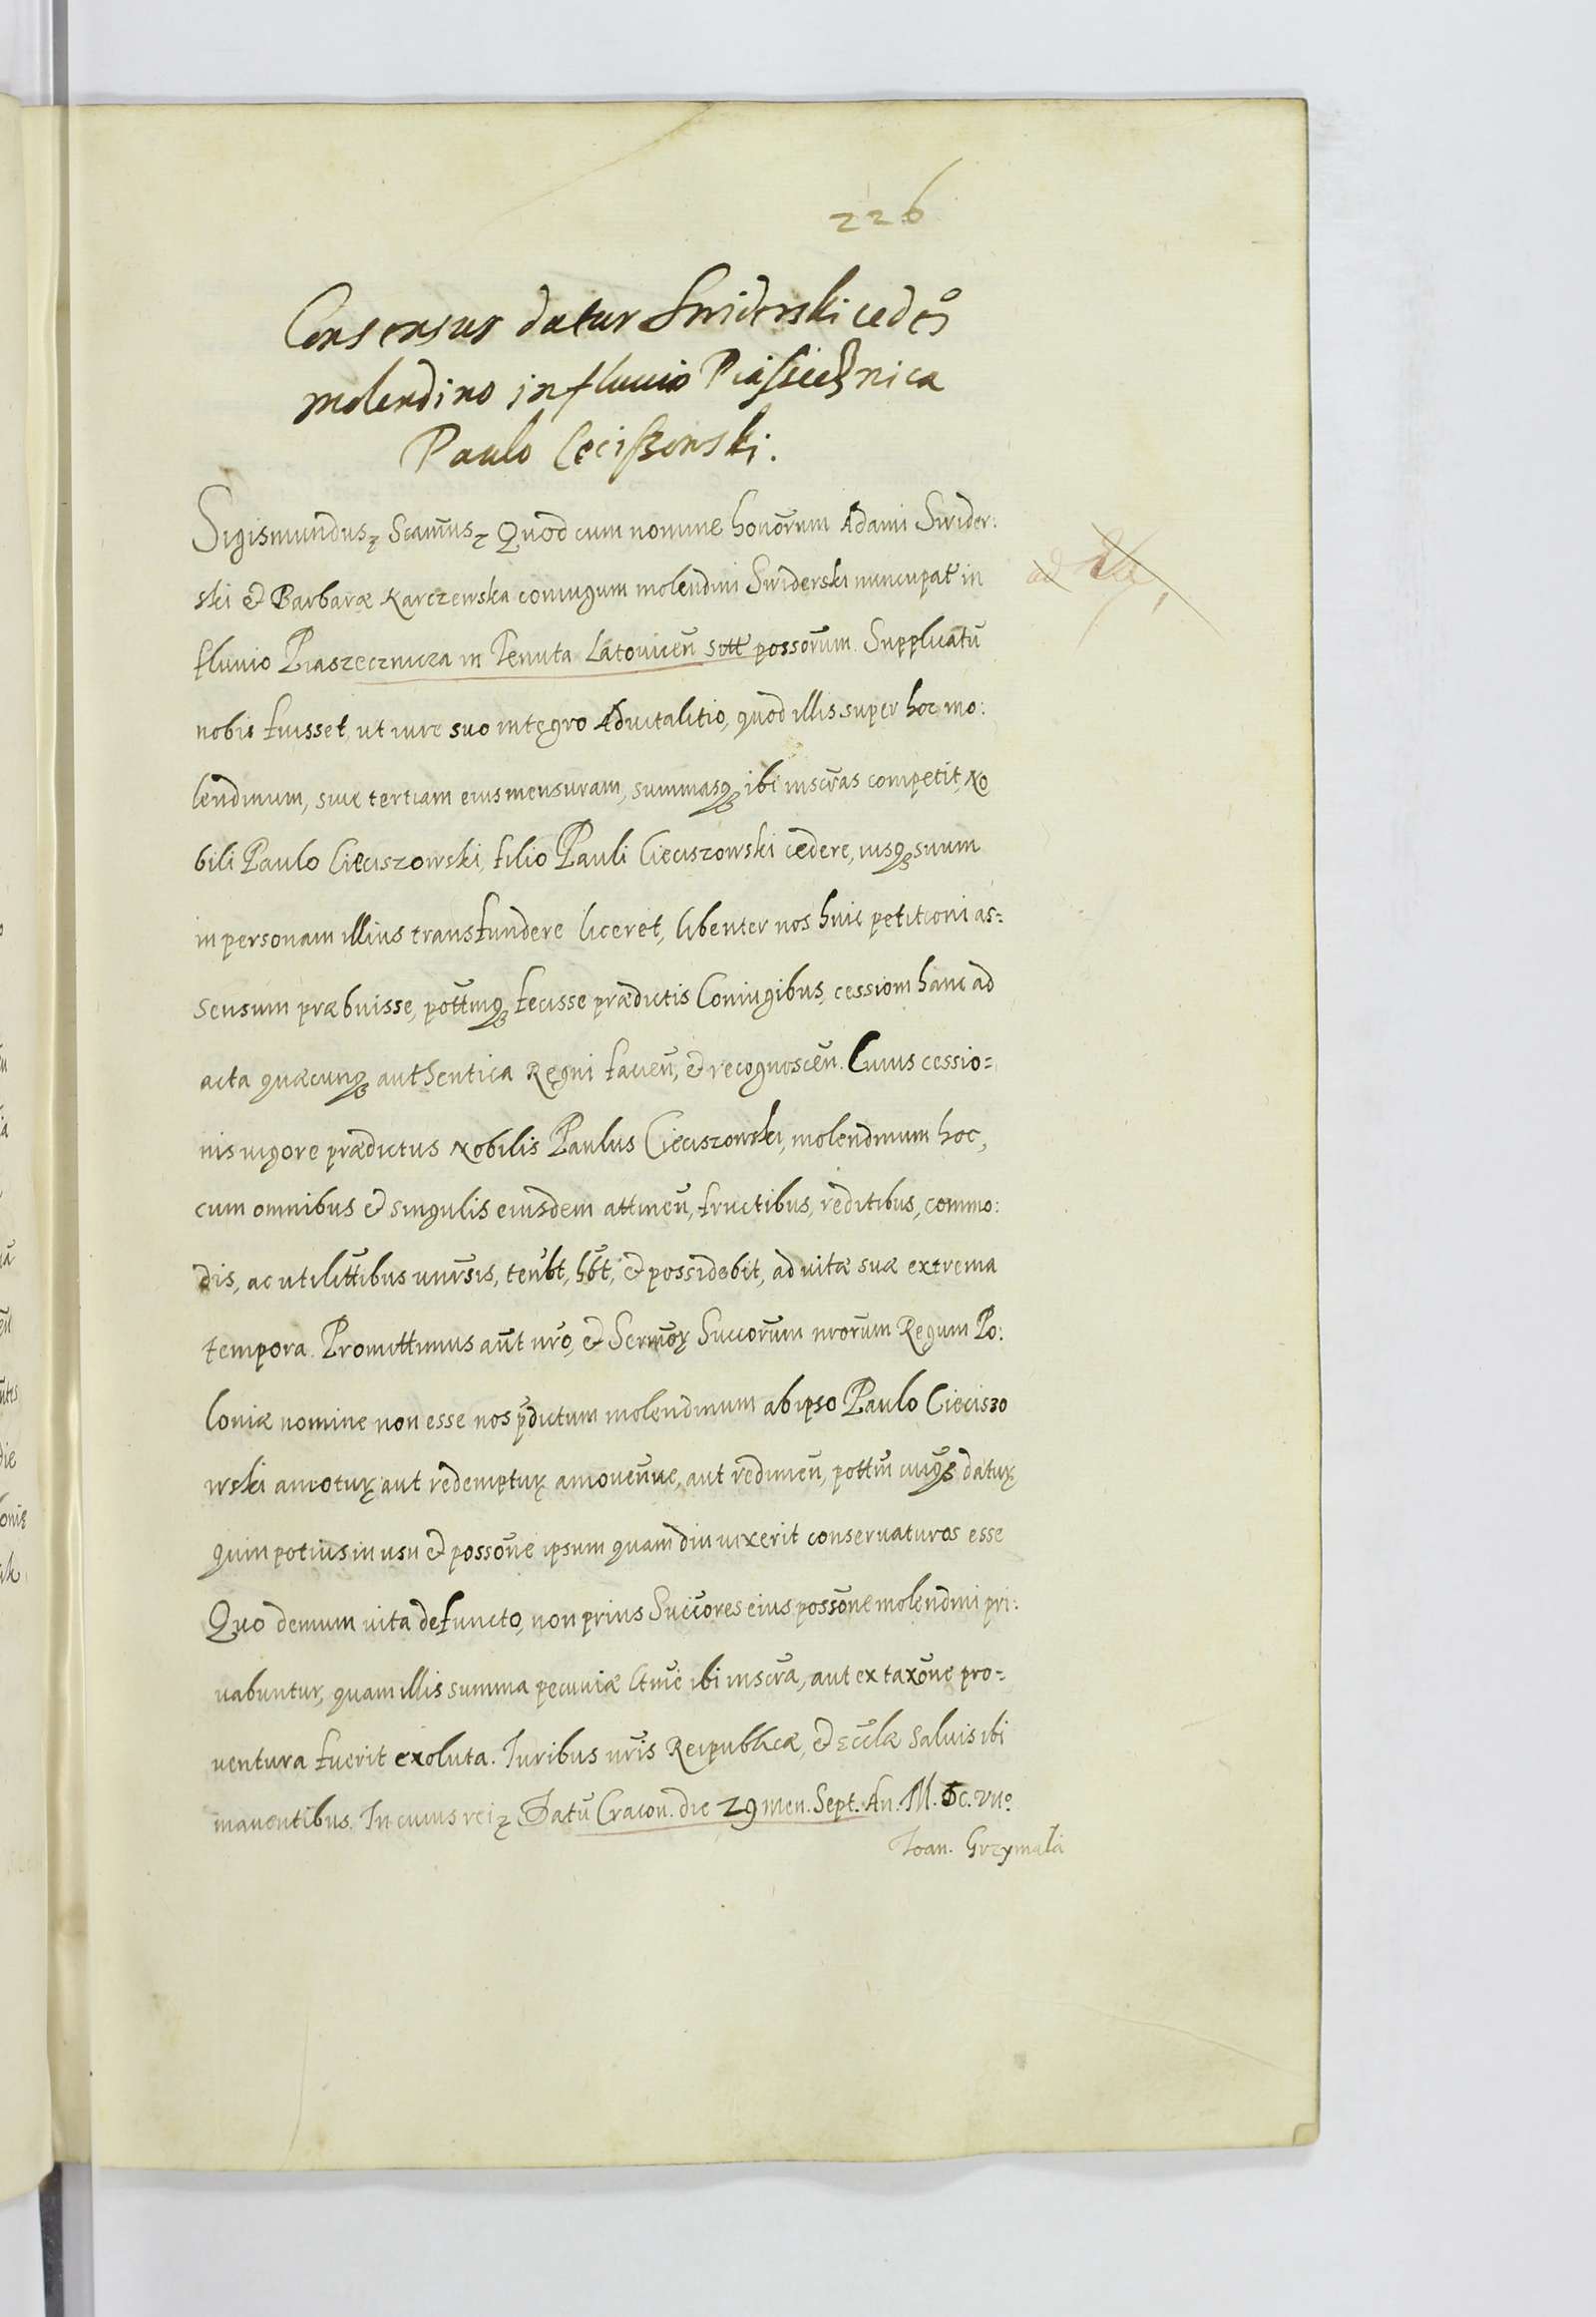 226
Consensus datur Swiderski ceden̄
molendino in fluuio Piassecznica
Paulo Cecißowski.
Sigismundusꝫ Scam̄usꝫ Quod cum nomine honōrum Adami Swider:
ski & Barbaræ Karczewska coniugum molendini Swiderski nuncupat̄ in
fluuio Piaszecznicza in Tenuta Latouicen̄ sitt̄ possor̄um. Supplicatū
nobis fuisset, ut iure suo integro Aduitalitio, quod illis super hoc mo:
lendinum, siue tertiam eius mensuram, summasqꝫ ibi inscr̄as competit, No
bili Paulo Cieciszowski, filio Pauli Cieciszowski cedere, iusqꝫ suum
in personam illius transfundere liceret, libenter nos huic petitioni as=
sensum præbuisse, pott̄mqꝫ fecisse prædictis Coniugibus, cessionm hanc ad
acta quæcunqꝫ authentica Regni facien̄, & recognoscen̄. Cuius cessio=
nis uigore prædictus Nobilis Paulus Cieciszowski, molendinum hoc,
cum omnibus & singulis eiusdem attinen̄, fructibus, reditibus, commo:
dis, ac utilitt̄ibus uniūrsis, ten̄bt, hb̄t, & possidebit, ad uitæ suæ extrema
tempora. Promittimus aūt nr̄o, & Serm̄oꝝ Succor̄um nror̄um Regum Po:
loniæ nomine non esse nos p̄dictum molendinum ab ipso Paulo Cieciszo
wski amotuꝝ aut redemptuꝝ amouen̄ue, aut redimen̄, pott̄m cuiqꝫ datuꝝ
quin potius in usu & possōne ipsum quamdiu uixerit conseruaturos esse
Quo demum uita defuncto, non prius Succ̄ores eius possōne molendini pri:
uabuntur, quam illis summa pecuniæ ltm̄e ibi inscr̄a, aut ex taxōne pro=
uentura fuerit exoluta. Iuribus nr̄is Reipublicæ, & Ecc̄læ saluis ibi
manentibus. In cuius reiꝫ Datū Cracou. die 29 men. Sept. An. M. DC. VIIº
Ioan. Grzymała